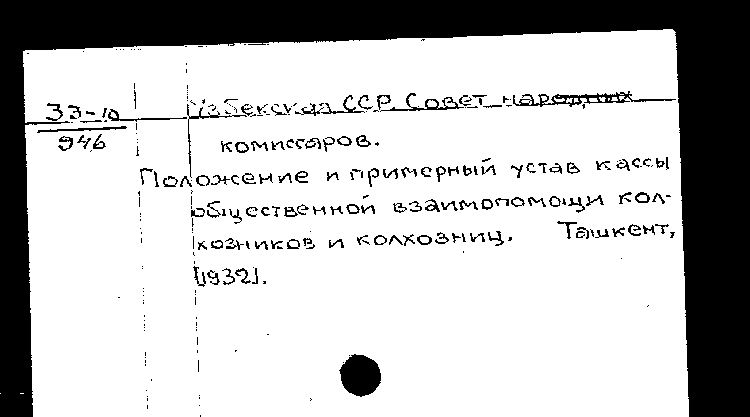 33-10
946
Узбекская ССР. Совет народных
комиссаров.
Положение и примерный устав кассы
общественной взаимопомощи кол-
хозников и колхозниц. Ташкент,
[1932].